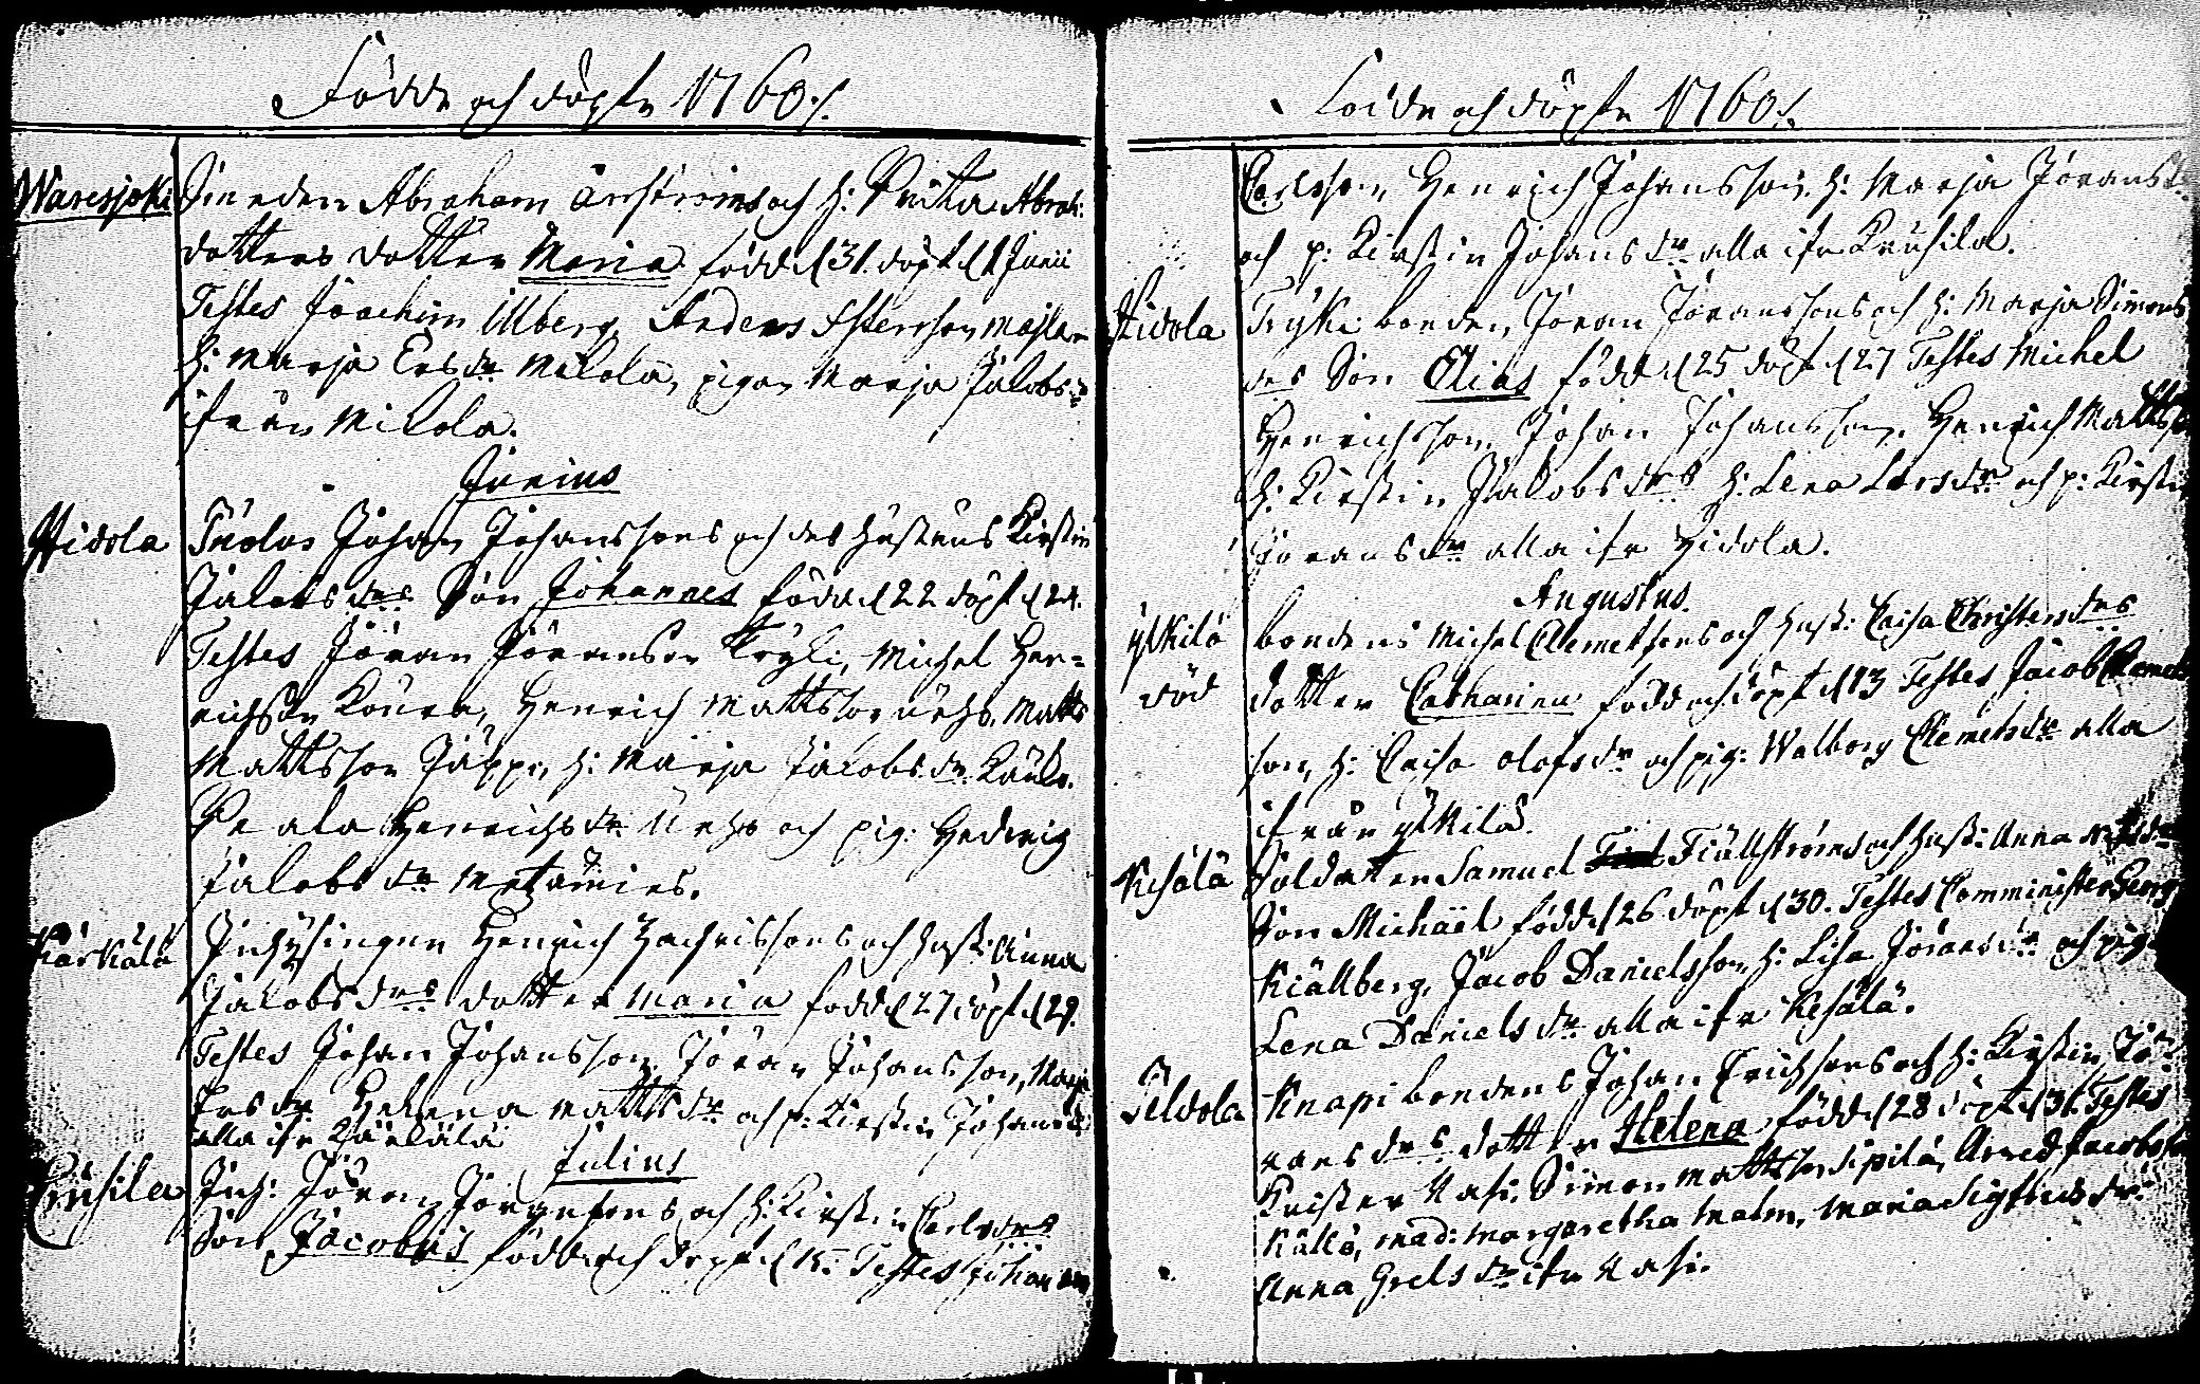 Födde och döpte 1760/.
Waresjoki
Smeden Abraham och h: Brita Abrah:
dotters dotter Maria född d 31. döpt d 1 Junii
Testes Joachim Ulberg, Anders
h: Marja Ersdr Mikola, pigan Marja Jakobsdr
ifrån Mikola.
Junius
Hidola
Johan Johanssons och des hustrus Kirstin
Jakobsdrs Son Johannes född d 22 döpt d 24.
Testes Jöran Jöransson Tryki, Michel Hen=
richson Henrich Mattsson Matts
Mattsson Jäppi, h: Marja Jacobsdr
Beata Henrichsdr och pig: Hedwig
Jakobsdr
Kärkälä
Inhysingen Henrich Zachrissons och hust: Anna
Jakobsdrs dotter Maria född d 27 döpt d 29.
Testes Johan Johansson, Jöran Johansson, Marja
Ersdr Helena Mattsdr och p: Kirstin Johansdr
alla ifr Kärkälä
Julius
Kruhsila
Inh: Jöran Jöransons och h: Kirstin Carlsdrs
Son Jacobus född och döpt d 15. Testes Johan
Födde och döpte 1760/.
Carlsson, Henrich Johansson, h: Marja Jöransdr
och p: Kirstin Johansdr alla ifr Kruhsila.
Hidola
Tryki bonden, Jöran Jöranssons och h: Marja Simons
drs Son Elias född d 25 döpt d 27 Testes Michel
Henrichsson, Johan Johansson, Henrich Mattsson
h: Kirstin Jakobsdr h: Lena Larsdr och p: Kirstin
Jöransdr alla ifr Hidola.
Augustus.
ylkilä
död
bondens Michel Clemetsons och hust: Caisa Christersdrs
dotter Catharina född och döpt d 13 Testes Jacob Clemets
son, h: Caisa Olofsdr och pig: Walborg Clemetsdr alla
ifrån ylkilä.
Kesälä
Soldaten Samuel Fiällströms och hust: Anna
Son Michaël född d 26 döpt d 30. Testes Comminister Georg
Kiällberg, Jacob Danielsson, h: Lisa Jöransdr och pig:
Lena Danielsdr alla ifr Kesälä.
Sildola
Knapi bondens Johan Erichsons och h: Kirstin Jö=
ransdrs dotter Helena född d 28 döpt d 31. Testes
Krister Simon Mattsson Sipilä, Arved Jacobsson
Källö, mad: Margaretha Malm, Maria Sigfridsdr.
Anna Grelsdr ifr